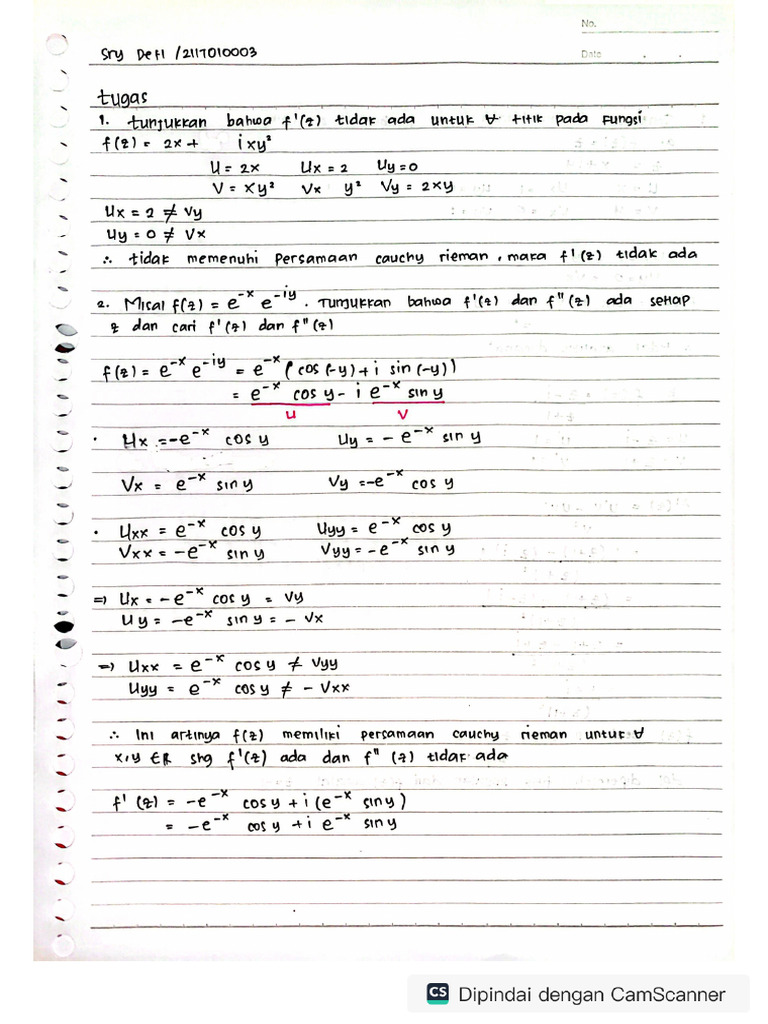 No.
Date
Sry Defi /2117010003
tugas
1. tunjukkan bahwa f'(z) tidak ada untuk ∀ titik pada fungsi
f(z) = 2x + ixy²
U = 2x Ux = 2 Uy = 0
V = xy² Vx y² Vy = 2xy
Ux = 2 ≠ Vy
Uy = 0 ≠ Vx
∴ tidak memenuhi persamaan cauchy rieman, maka f'(z) tidak ada
2. Misal f(z) = e⁻ˣ e⁻ⁱʸ. Tunjukkan bahwa f'(z) dan f"(z) ada setiap
z dan cari f'(z) dan f"(z)
f(z) = e⁻ˣ e⁻ⁱʸ = e⁻ˣ (cos (-y) + i sin (-y))
= e⁻ˣ cos y - i e⁻ˣ sin y
u v
· Ux = -e⁻ˣ cos y Uy = - e⁻ˣ sin y
Vx = e⁻ˣ sin y Vy = -e⁻ˣ cos y
· Uxx = e⁻ˣ cos y Uyy = e⁻ˣ cos y
Vxx = -e⁻ˣ sin y Vyy = -e⁻ˣ sin y
=) Ux = -e⁻ˣ cos y = Vy
Uy = -e⁻ˣ sin y = - Vx
=) Uxx = e⁻ˣ cos y ≠ Vyy
Uyy = e⁻ˣ cos y ≠ - Vxx
∴ Ini artinya f(z) memiliki persamaan cauchy rieman untuk ∀
x,y ∈ R shg f'(z) ada dan f" (z) tidak ada
f' (z) = -e⁻ˣ cos y + i (e⁻ˣ sin y)
= -e⁻ˣ cos y + i e⁻ˣ sin y
CS Dipindai dengan CamScanner